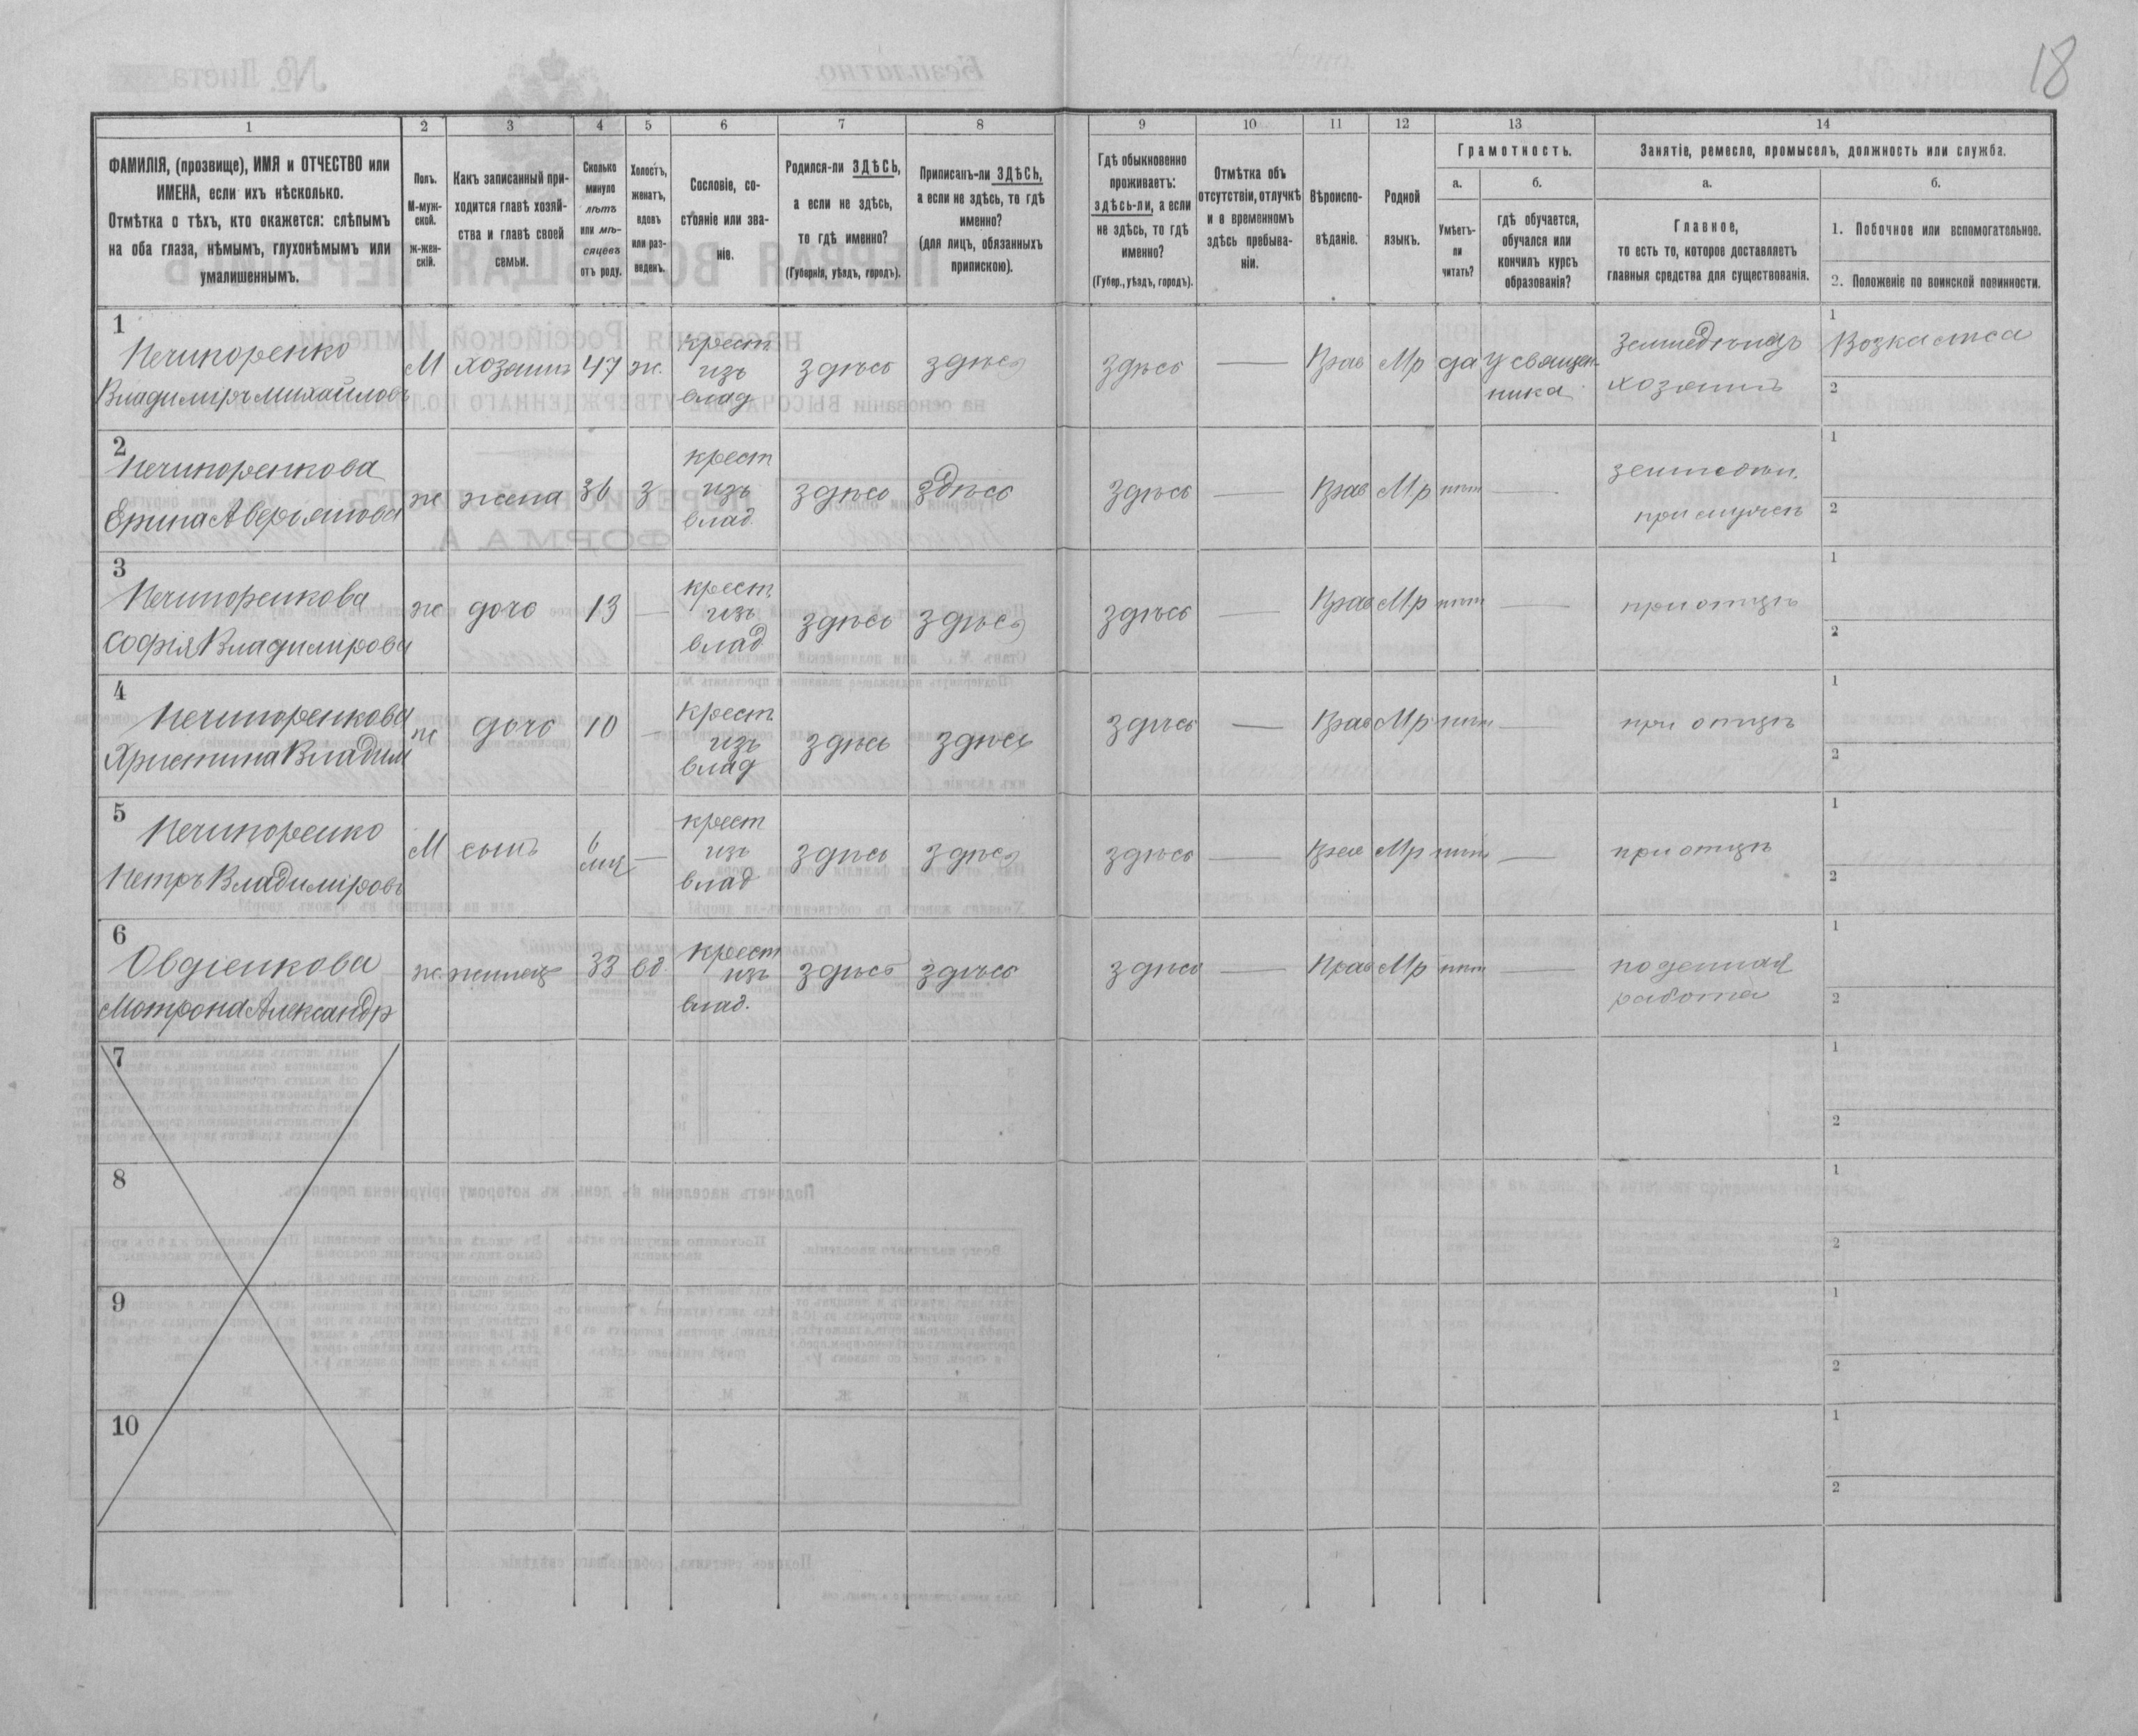 18
1 2 3 4 5 6 7 8 9 10 11 12 13 14
ФАМИЛІЯ, (прозвище), ИМЯ и ОТЧЕСТВО или
ИМЕНА, если ихъ нѣсколько.
Отмѣтка о тѣхъ, кто окажется: слѣпымъ
на оба глаза, нѣмымъ, глухонѣмымъ или
умалишеннымъ.
Полъ.
М-муж-
ской.
ж-жен-
скій.
Какъ записанный при-
ходится главѣ хозяй-
ства и главѣ своей
семьи.
Сколько
минуло
лѣтъ
или мѣ-
сяцевъ
отъ роду.
Холостъ,
женатъ,
вдовъ
или раз-
веденъ.
Сословіе, со-
стояніе или зва-
ніе.
Родился-ли ЗДѢСЬ,
а если не здѣсь,
то гдѣ именно?
(Губернія, уѣздъ, городъ).
Приписанъ-ли ЗДѢСЬ,
а если не здѣсь, то гдѣ
именно?
(для лицъ, обязанныхъ
припискою).
Гдѣ обыкновенно
проживаетъ:
здѣсь-ли, а если
не здѣсь, то гдѣ
именно?
(Губер., уѣздъ, городъ).
Отмѣтка объ
отсутствіи, отлучкѣ
и о временномъ
здѣсь пребыва-
ніи.
Вѣроиспо-
вѣданіе.
Родной
языкъ.
Грамотность.
а.
Умѣетъ-
ли
читать?
б.
гдѣ обучается,
обучался или
кончилъ курсъ
образованія?
Занятіе, ремесло, промыселъ, должность или служба.
а.
Главное,
то есть то, которое доставляетъ
главныя средства для существованія.
б.
1. Побочное или вспомогательное.
2. Положеніе по воинской повинности.
1
Нечипоренко
Владиміръ Михайловъ
М хозяинъ 47 ж.
крест.
изъ
влад
здѣсь здѣсь здѣсь — Прав Мр да
у священ-
ника
Земледѣлецъ
хозяинъ
1
2
2
Нечипоренкова
ж жена 36 з
крест
изъ
влад.
здѣсь здѣсь здѣсь — Прав Мр нѣт —
земледѣл.
при мужѣ
1
2
3
Нечипоренкова
Софія Владимірова
ж дочь 13 —
крест.
изъ
влад
здѣсь здѣсь здѣсь — Прав Мр нѣт —
при отцѣ
1
2
4
Нечипоренкова
Христина Владим
ж дочь 10 —
крест.
изъ
влад
здѣсь здѣсь здѣсь — Прав Мр нѣт —
при отцѣ
1
2
5
Нечипоренко
Петръ Владиміровъ
М сынъ
6
мц
—
крест
изъ
влад
здѣсь здѣсь здѣсь — Прав Мр нѣт —
при отцѣ
1
2
6
Овдіенкова
Мотрона Александр
ж. жилец 33 вд.
крест
изъ
влад.
здѣсь здѣсь здѣсь — Прав Мр нѣт —
поденная
работа
1
2
7
1
2
8
1
2
9
1
2
10
1
2